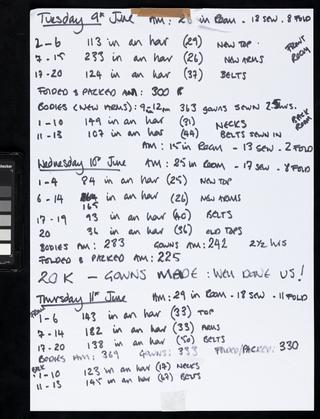 Tuesday 9th June AM: 26 in Room - 18 SEW - 8 FOLD
2-6 113 in an har (29) NEW TOP. FRONT ROOM
7-15 233 in an har (26) NEW ARMS
17-20 124 in an har (37) BELTS
FOLDED & PACKED AM: 300
BODIES (NEW ARMS): 9-12am 363 GOWNS SEWN 2.5hrs.
1-10 149 in an har (31) NECKS BACK ROOM
11-13 107 in an har (44) BELTS SEWN IN
AM: 15 in Room - 13 SEW - 2 FOLD
Wednesday 10th June AM: 25 in Room - 17 SEW - 8 FOLD
1-4 84 in an har (25) NEW TOP
6-14 165 in an har (26) NEW ARMS
17-19 93 in an har (40) BELTS
20 36 in an har (36) OLD TOPS
BODIES AM: 283 GOWNS AM: 242 2½ hrs
FOLDED & PACKED AM: 225
20K - GOWNS MADE: WELL DONE US!
Thursday 11th June AM: 29 in Room - 18 SEW - 11 FOLD
FRONT 1-6 143 in an har (33) TOP
7-14 182 in an har (33) ARMS
17-20 138 in an har (50) BELTS
BODIES AM: 369 GOWNS: 333 FOLDED/PACKED: 330
BACK 1-10 123 in an har (17) NECKS
11-13 145 in an har (67) BELTS